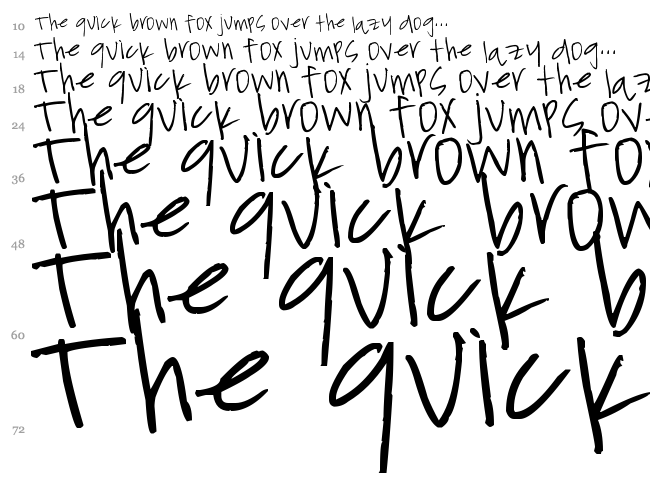 10 The quick brown fox jumps over the lazy dog...
14 The quick brown fox jumps over the lazy dog...
18 The quick brown fox jumps over the laz
24 The quick brown fox jumps ov
36 The quick brown fo
48 The quick brow
60 The quick b
72 The quick